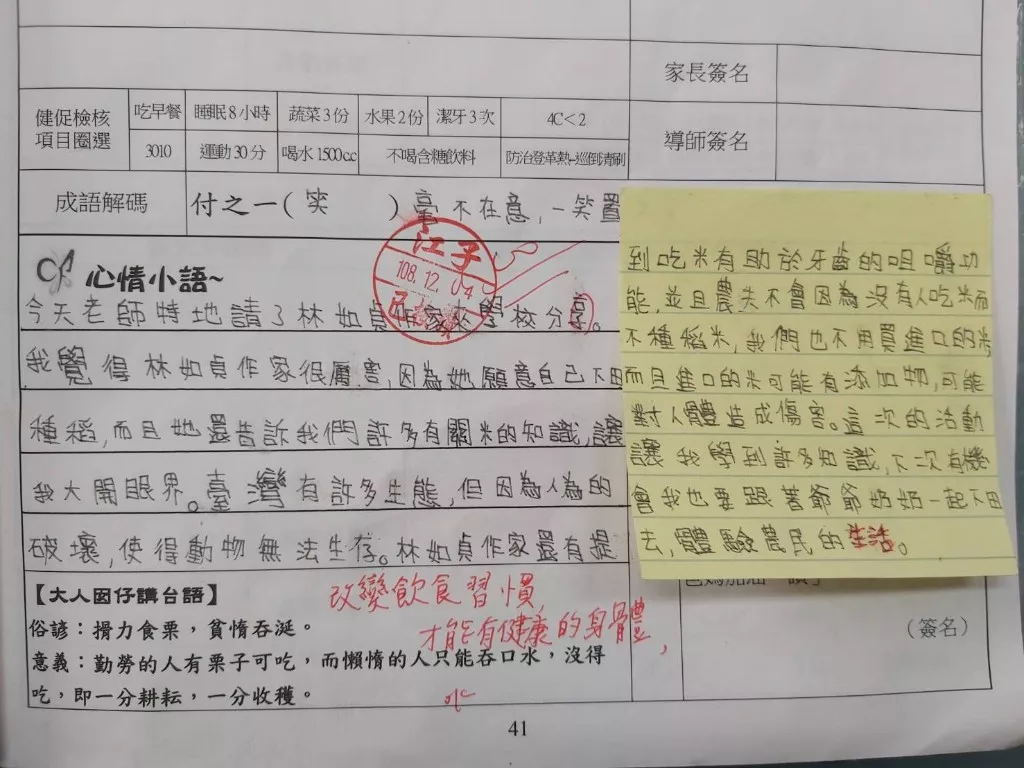 家長簽名
健促檢核
項目圈選
吃早餐 睡眠8小時 蔬菜3份 水果2份 潔牙3次 4C<2
3010 運動30分 喝水1500c.c 不喝含糖飲料 防治登革熱-巡倒清刷
導師簽名
成語解碼 付之一(笑 )毫不在意,一笑置
心情小語~
江子
108.12.04
今天老師特地請了林如貞作家來學校分享。
我覺得林如貞作家很厲害,因為她願意自己下田
種稻,而且她還告訴我們許多有關米的知識,讓
我大開眼界。臺灣有許多生態,但因為人為的
破壞,使得動物無法生存。林如貞作家還有提
到吃米有助於牙齒的咀嚼功
能,並且農夫不會因為沒有人吃米而
不種稻米,我們也不用買進口的米
而且進口的米可能有添加物,可能
對人體造成傷害。這次的活動
讓我學到許多知識,下次有機
會我也要跟著爺爺奶奶一起下田
去,體驗農民的生活。
改變飲食習慣,
才能有健康的身體,
【大人囡仔講台語】
俗諺:搰力食栗,貧惰吞涎。
意義:勤勞的人有栗子可吃,而懶惰的人只能吞口水,沒得
吃,即一分耕耘,一分收穫。
(簽名)
41